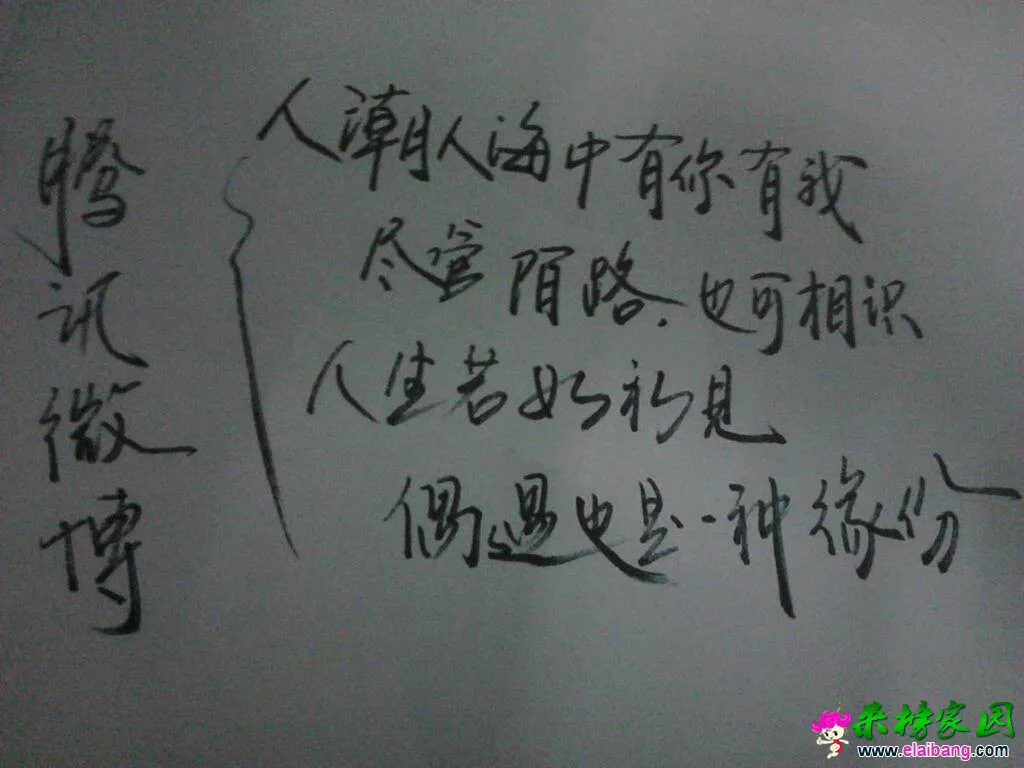 腾讯微博
人潮人海中有你有我
尽管陌路.也可相识
人生若如初见
偶遇也是一种缘份
来榜家园
www.elaibang.com